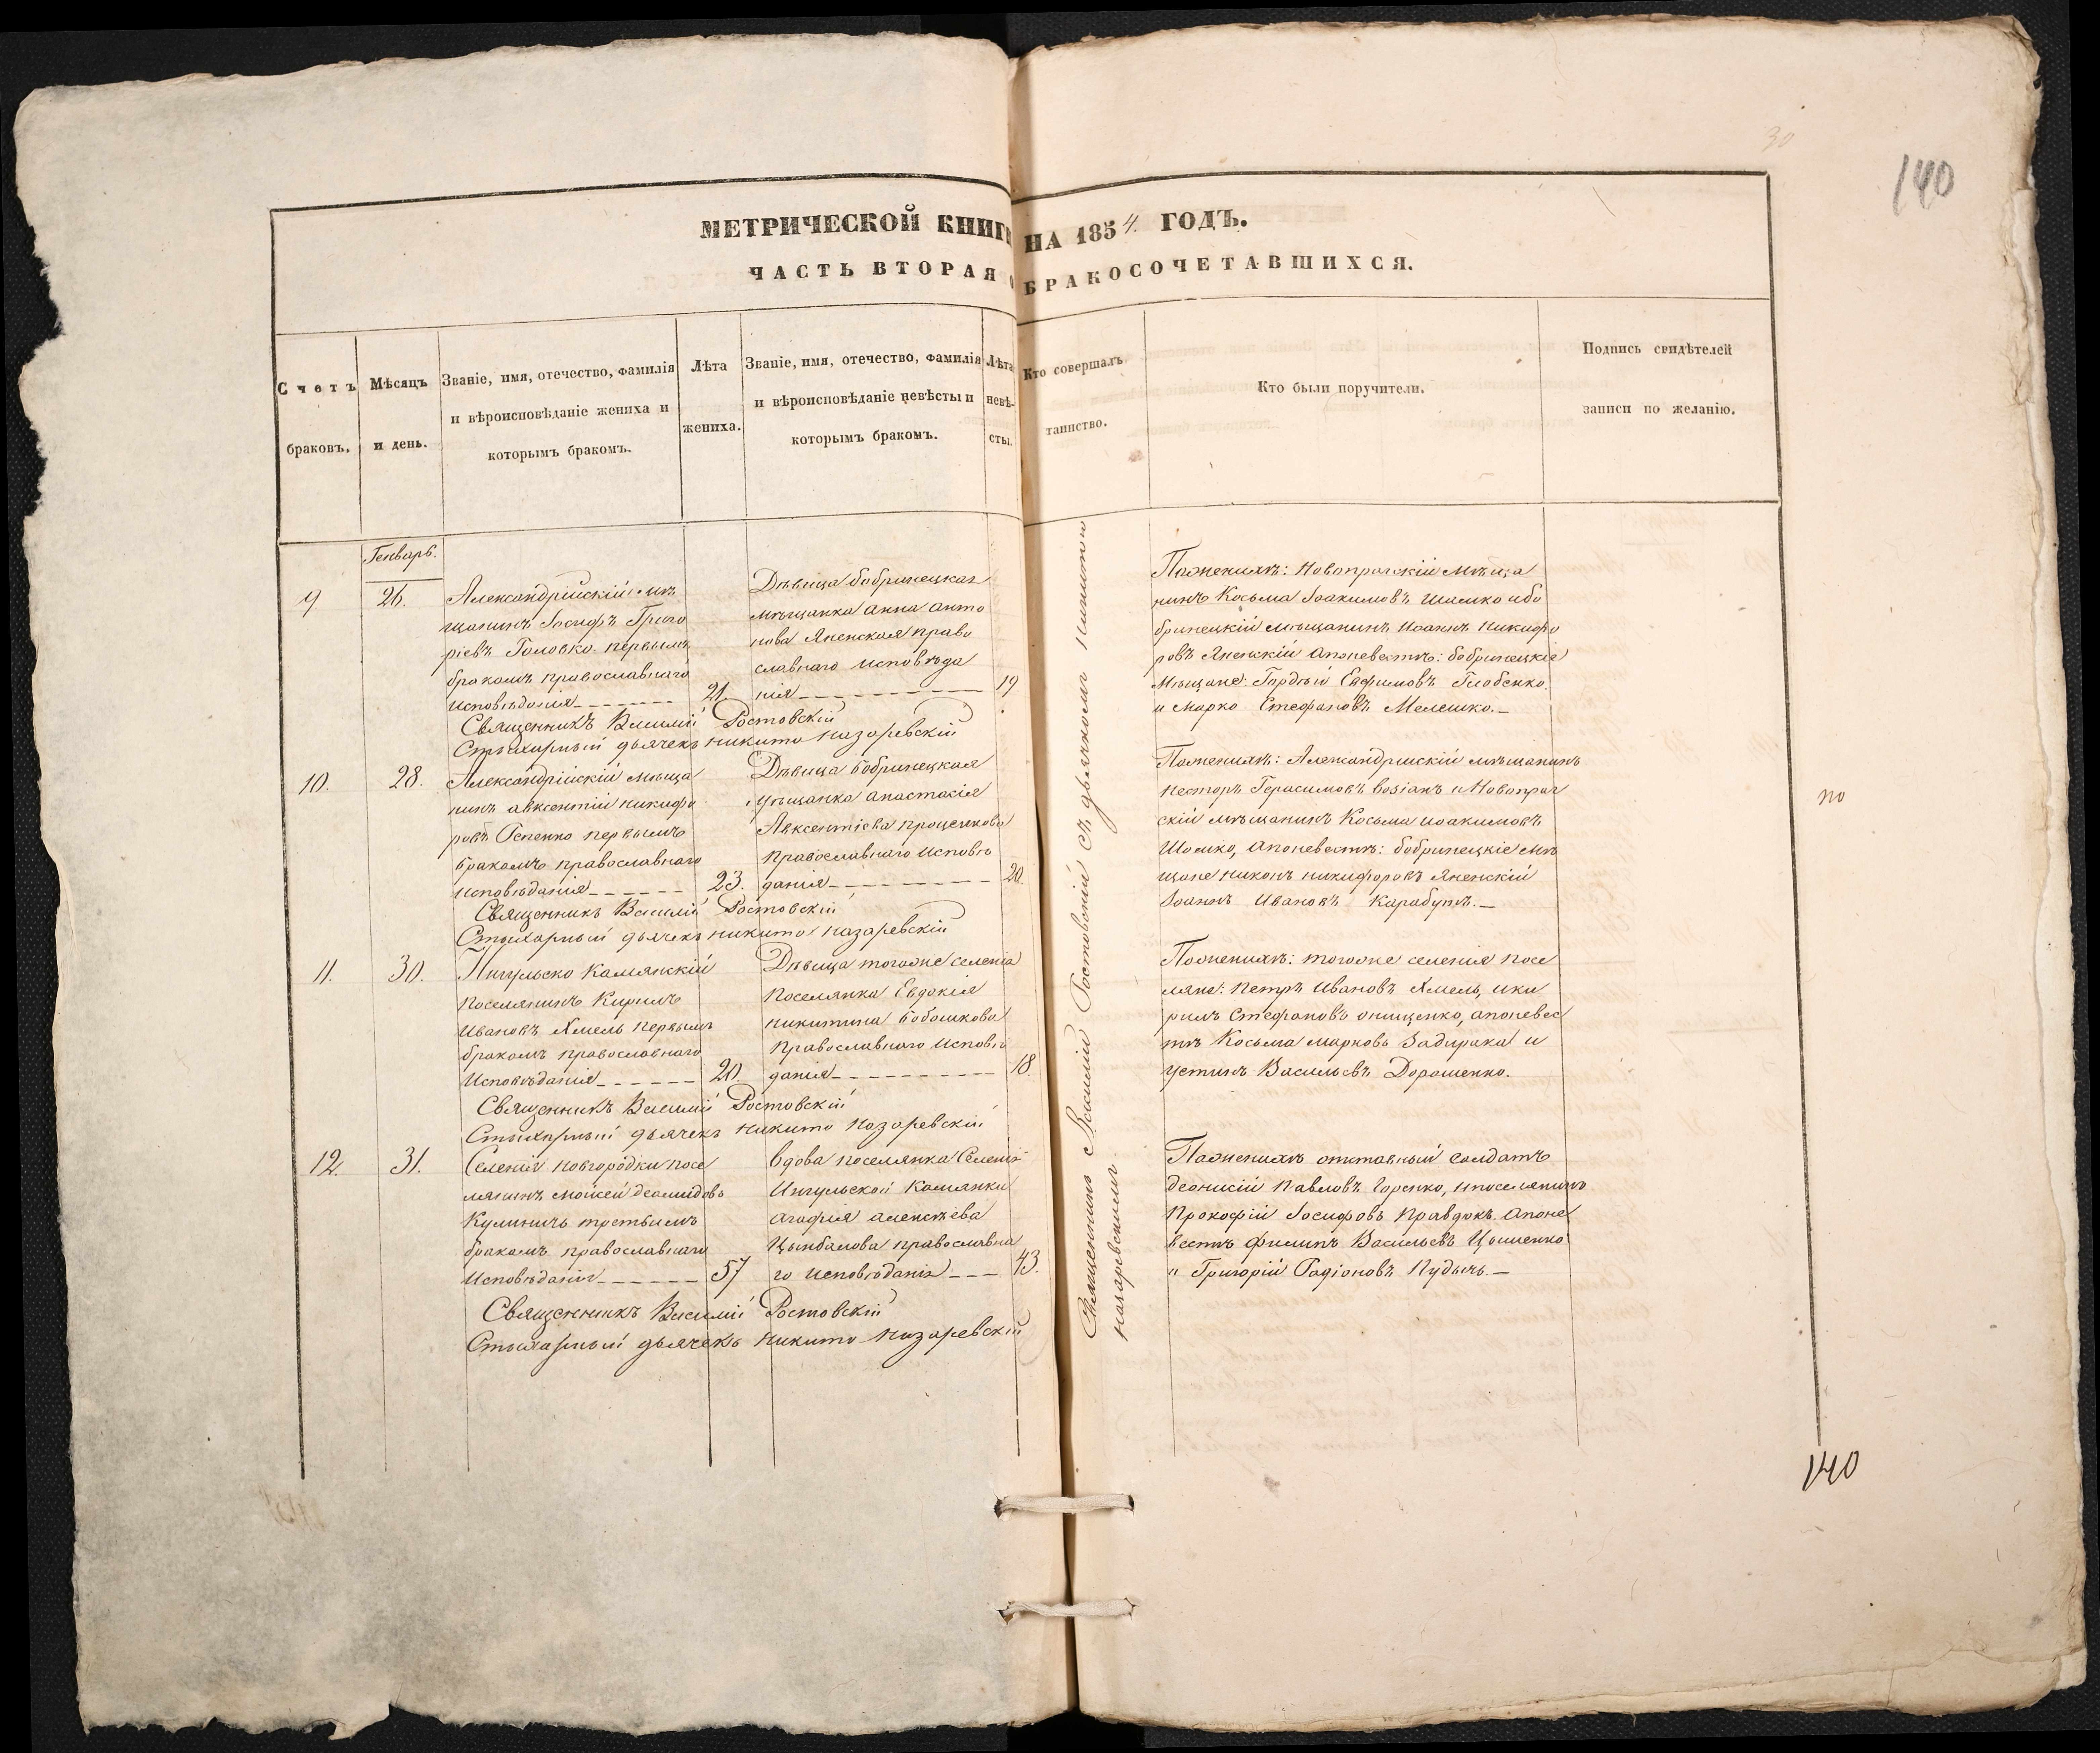 30
140
МЕТРИЧЕСКОЙ КНИГИ НА 1854. ГОДЪ.
ЧАСТЬ ВТОРАЯ О БРАКОСОЧЕТАВШИХСЯ.
Счетъ
браковъ.
Мѣсяцъ
и день.
Званіе, имя, отечество, фамилія
и вѣроисповѣданіе жениха и
которымъ бракомъ.
Лѣта
жениха.
Званіе, имя, отечество, фамилія
и вѣроисповѣданіе невѣсты и
которымъ бракомъ.
Лѣта
невѣ-
сты.
Кто совершалъ
таинство.
Кто были поручители.
Подпись свидѣтелей
записи по желанію.
Генварь.
9
26.
Александрійскій мѣ
щанинъ Іосифъ Григо
ріевъ Головко первымъ
бракомъ православнаго
исповѣданія
21.
Дѣвица бобринецкая
мѣщанка Анна Анто
нова Яненская право
славнаго исповѣда
нія
19
Поженихѣ: Новопрагскій мѣща
нинъ Косьма Іоакимовъ Шамко ибо
бринецкій мѣщанинъ Иоаннъ Никифо
ровъ Яненскій апоневестѣ: бобринецкіе
мѣщане: Гордѣй Евфимовъ Глобенко
и Марко Стефановъ Мелешко.
Священникъ Василій Ростовскій
Стихарный дьячекъ Никита Назаревскій
10.
28.
Александрійскій мѣща
нинъ авксентій никифо
ровъ Осненко первымъ
бракомъ православнаго
исповѣданія
23.
Дѣвица бобринецкая
мѣщанка анастасія
Авксентіева проценкова
православнаго исповѣ
данія
20.
Поженихѣ: Александрійскій мѣщанинъ
Несторъ Герасимовъ Возіанъ и Новопраг
скій мѣщанинъ Косьма иоакимовъ
Шамко, апоневестѣ: бобринецкіе мѣ
щане никонъ никифоровъ Яненскій
Іоаннъ Ивановъ Карабутъ.
Священникъ Василій Ростовскій
Стихарный дьячекъ никита назаревскій
11.
30.
Ингульско Камянскій
поселянинъ Кирилъ
Ивановъ Хмель первымъ
бракомъ православнаго
исповѣданія
20.
Дѣвица тогоже селенія
поселянка Евдокія
никитина бабашкова
православнаго исповѣ
данія
18.
Поженихѣ: тогоже селенія посе
ляне: Петръ Ивановъ Хмель, ики
рилъ Стефановъ онищенко, апоневес
тѣ Косьма марковъ Задирака и
устинъ Васильевъ Дорошенко.
Священникъ Василій Ростовскій
Стихарный дьячекъ никита назаревскій
12.
31.
Селенія новгородки посе
лянинъ моисей деомидовъ
Кулиничъ третьимъ
бракомъ православнаго
исповѣданія
57
вдова поселянка Селенія
Ингульской Камянки
агафія алексѣева
Цымбалова православна
го исповѣданія
43.
Поженихѣ отставный солдатъ
деонисій Павловъ Горенко, ипоселянинъ
Прокофій Іосифовъ Правдюкъ. апоне
вестѣ филипъ Васильевъ Цышенко
и Григорій Радіоновъ Кудынъ.
Священникъ Василій Ростовскій
Стихарный дьячекъ никита назаревскій
Священникъ Василій Ростовскій съ дьячкомъ никитою
назаревскимъ
по
140